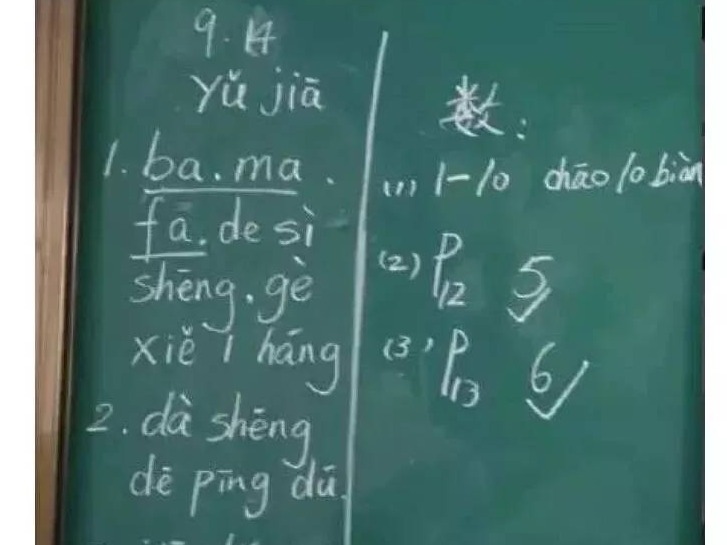 9.14
Yǔ jiā
1. ba. ma.
fā. de sì
shēng. gè
xiě 1 háng
2. dà shēng
dē pīng dú.
数:
(1) 1-10 chāo 10 biàn
(2) P12 5
(3) P13 6